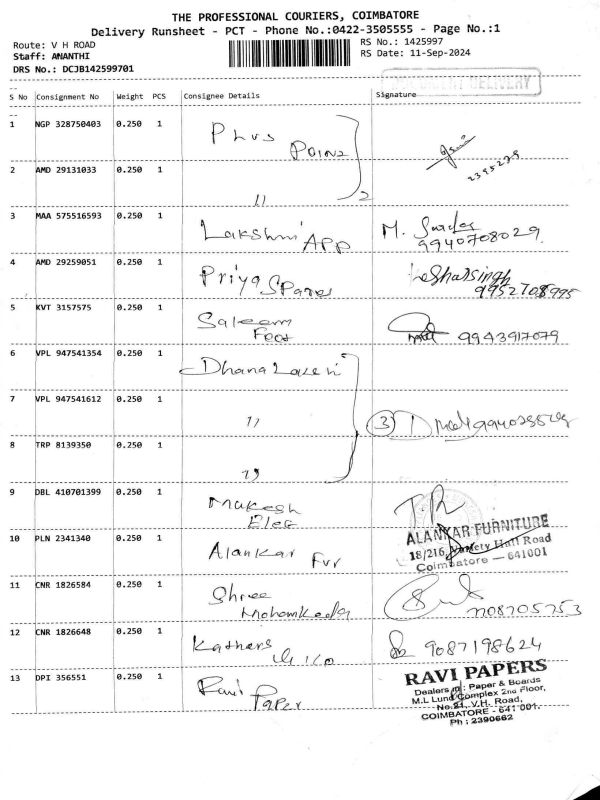 THE PROFESSIONAL COURIERS, COIMBATORE
Delivery Runsheet - PCT - Phone No.:0422-3505555 - Page No.:1
Route: V H ROAD
RS No.: 1425997
Staff: ANANTHI
RS Date: 11-Sep-2024
DRS No.: DCJB142599701
DELIVERY
S No Consignment No Weight PCS Consignee Details Signature
1 NGP 328750403 0.250 1 Plus Poinz
2 AMD 29131033 0.250 1 11 2
2395279
3 MAA 575516593 0.250 1 Lakshmi App M.
9940708029
4 AMD 29259051 0.250 1 Priya Spares
9952708995
5 KVT 3157575 0.250 1 Saleem Foot 9943917079
6 VPL 947541354 0.250 1 Dhana Laxmi
7 VPL 947541612 0.250 1 11 3
8 TRP 8139350 0.250 1 11
9 DBL 410701399 0.250 1 Mukesh Elec
10 PLN 2341340 0.250 1 Alankar Fur
ALANKAR FURNITURE
18/216, Variety Hall Road
Coimbatore — 641001
11 CNR 1826584 0.250 1 Shree
12 CNR 1826648 0.250 1 9087198624
13 DPI 356551 0.250 1 Ravi Paper
RAVI PAPERS
Dealers in : Paper & Boards
M.L Lund Complex 2nd Floor,
No.21, V.H. Road,
COIMBATORE - 641 001.
Ph : 2390662